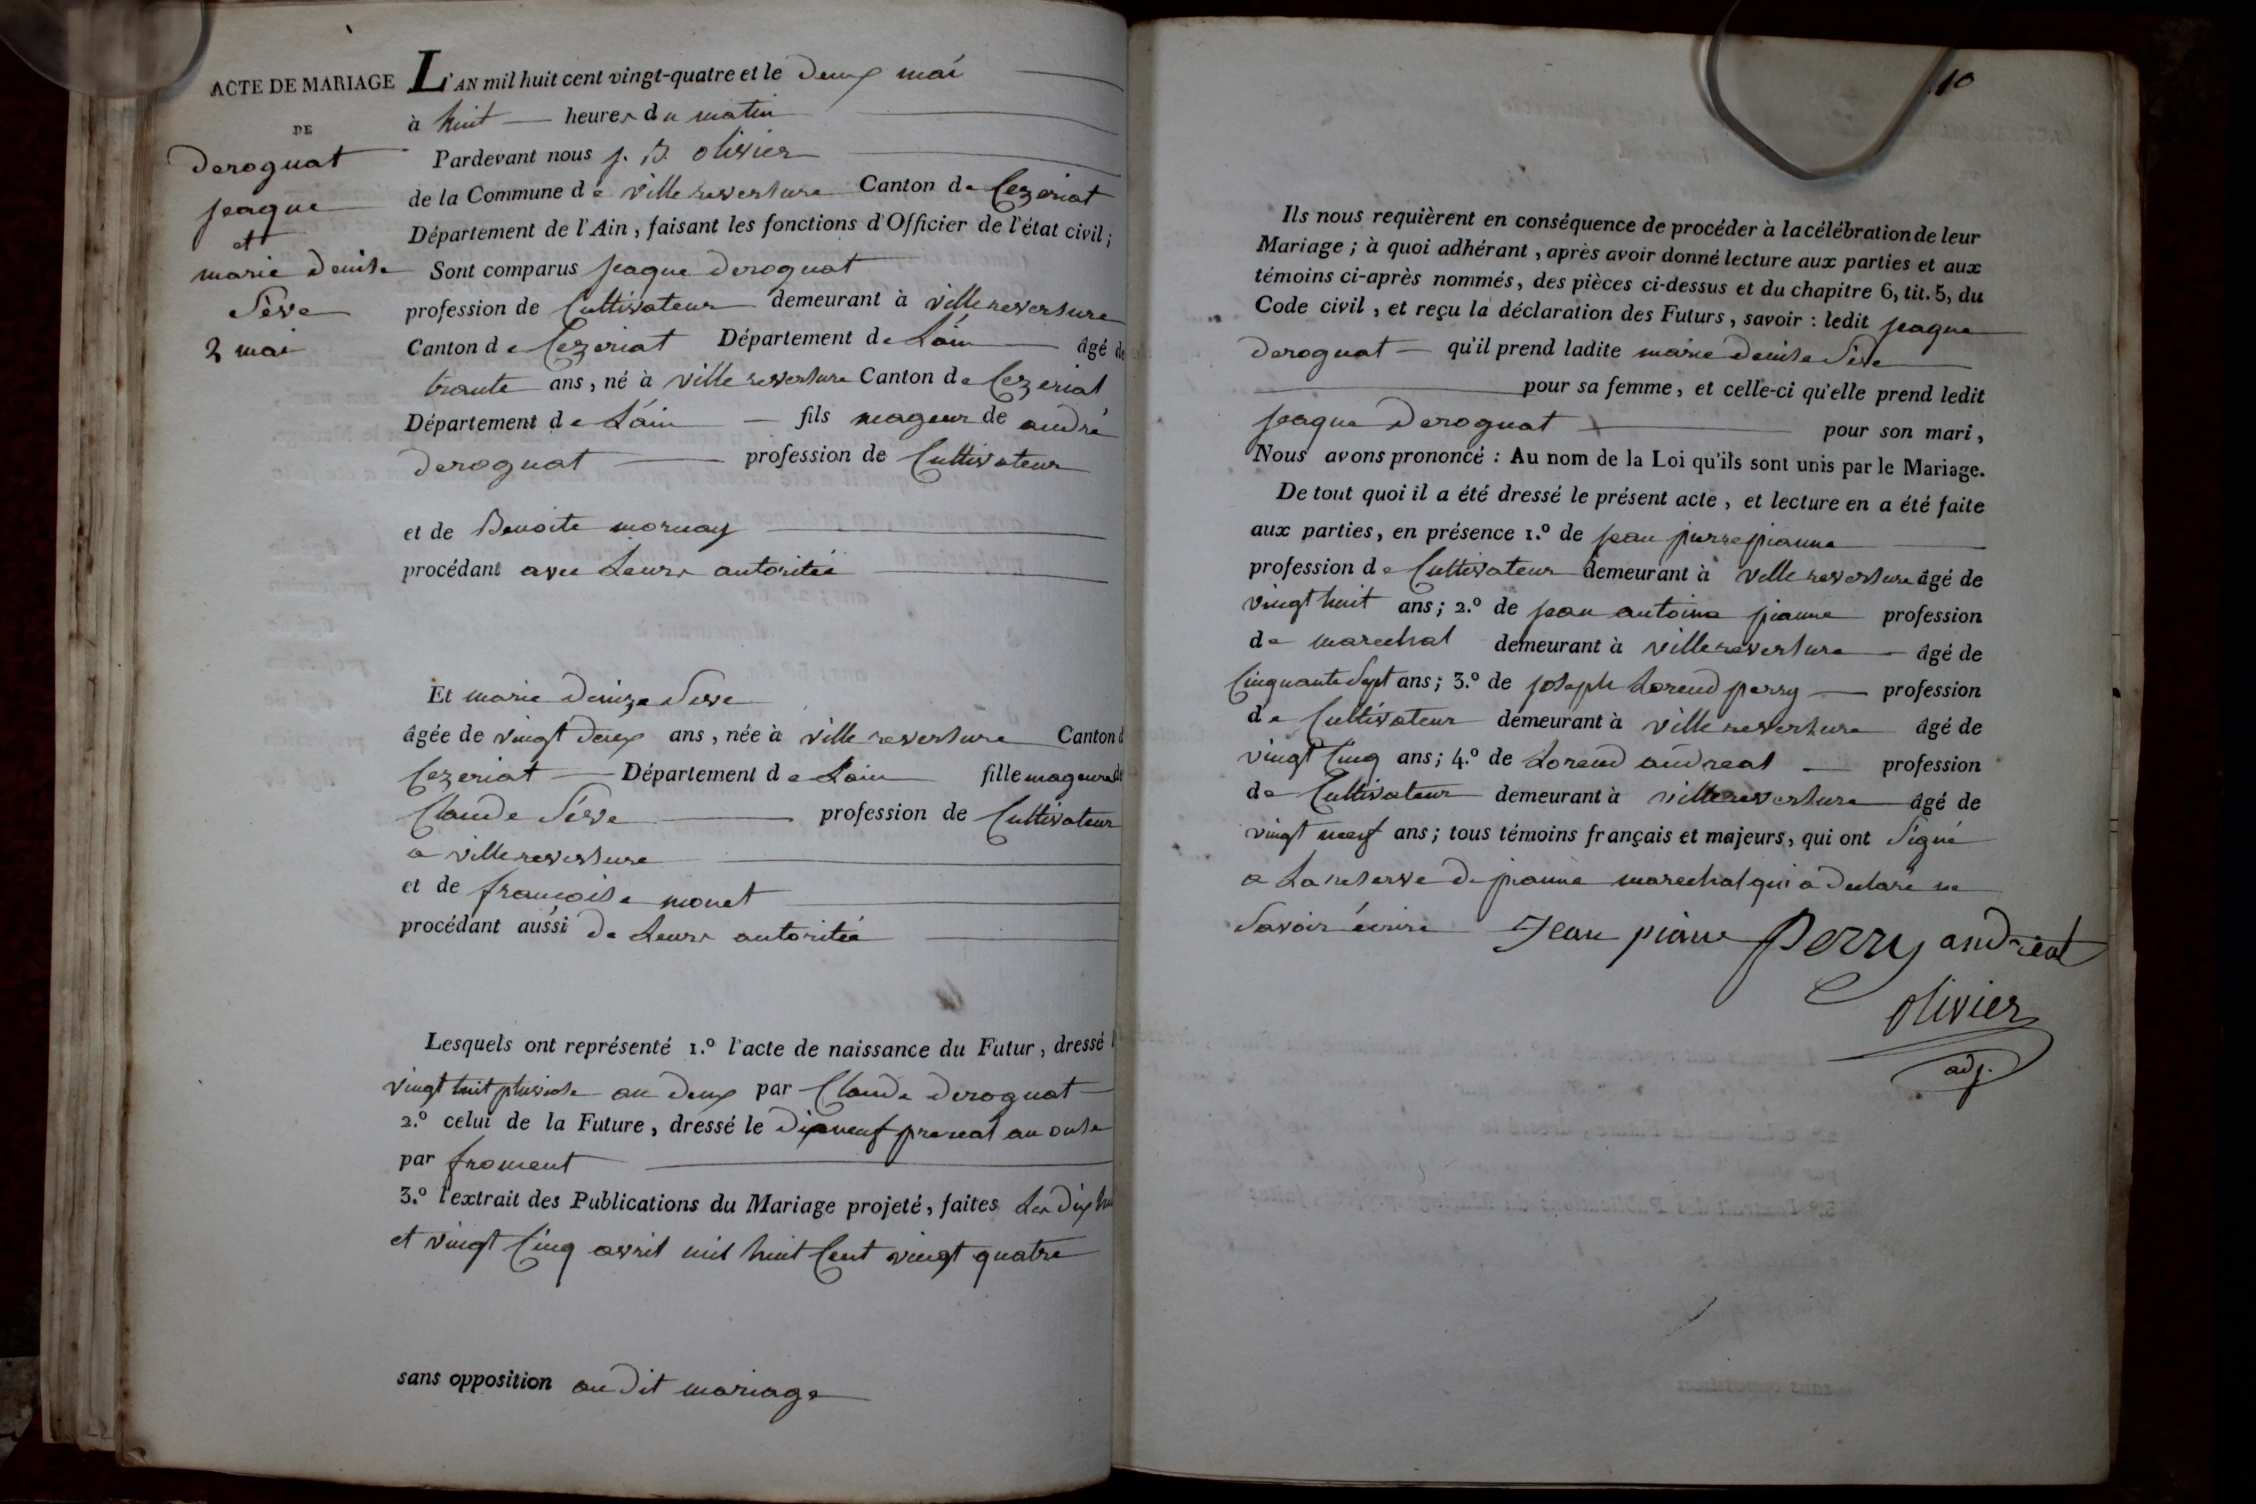 ACTE DE MARIAGE
DE
deroguat
jeaque
et
marie denise
Sève
2 mai
L'AN mil huit cent vingt-quatre et le deux mai
à huit heures du matin
Pardevant nous j. B. olivier
de la Commune de villereversure Canton de Cezeriat
Département de l'Ain, faisant les fonctions d'Officier de l'état civil;
Sont comparus jeaque deroguat
profession de Cultivateur demeurant à villereversure
Canton de Cezeriat Département de L'ain âgé de
trante ans, né à villereversure Canton de Cezeriat
Département de L'ain fils mageur de andré
deroguat profession de Cultivateur
et de Benoite mornay
procédant avec Leurs autoritée
Et marie denize Seve
âgée de vingt deux ans, née à villereversure Canton d
Cezeriat Département de Lain fille mageure de
Claude Séve profession de Cultivateur
a villereversure
et de françoise monet
procédant aussi de Leurs autoritée
Lesquels ont représenté 1.º l'acte de naissance du Futur, dressé l
vingt huit pluviose an deux par Claude deroguat
2.º celui de la Future, dressé le dixneuf prereal an onse
par froment
3.º l'extrait des Publications du Mariage projeté, faites Les dix hui
et vingt Cinq avril mil huit Cent vingt quatre
sans opposition au dit mariage
10
Ils nous requièrent en conséquence de procéder à la célébration de leur
Mariage; à quoi adhérant, après avoir donné lecture aux parties et aux
témoins ci-après nommés, des pièces ci-dessus et du chapitre 6, tit. 5, du
Code civil, et reçu la déclaration des Futurs, savoir: ledit jeaque
deroguat qu'il prend ladite marie denise Séve
pour sa femme, et celle-ci qu'elle prend ledit
jeaque deroguat pour son mari,
Nous avons prononcé: Au nom de la Loi qu'ils sont unis par le Mariage.
De tout quoi il a été dressé le présent acte, et lecture en a été faite
aux parties, en présence 1.º de jean pierre pianne
profession de Cultivateur demeurant à villereversure âgé de
vingt huit ans; 2.º de jean antoine pianne profession
de marechal demeurant à villereversure âgé de
Cinquante Sept ans; 3.º de joseph Lorend perry profession
de Cultivateur demeurant à villereversure âgé de
vingt Cinq ans; 4.º de Lorend andreat profession
de Cultivateur demeurant à villereversure âgé de
vingt neuf ans; tous témoins français et majeurs, qui ont Signé
a La reserve de pianne marechal qui a declaré ne
Savoir écrire Jean piane Perry andréat
olivier
adj.